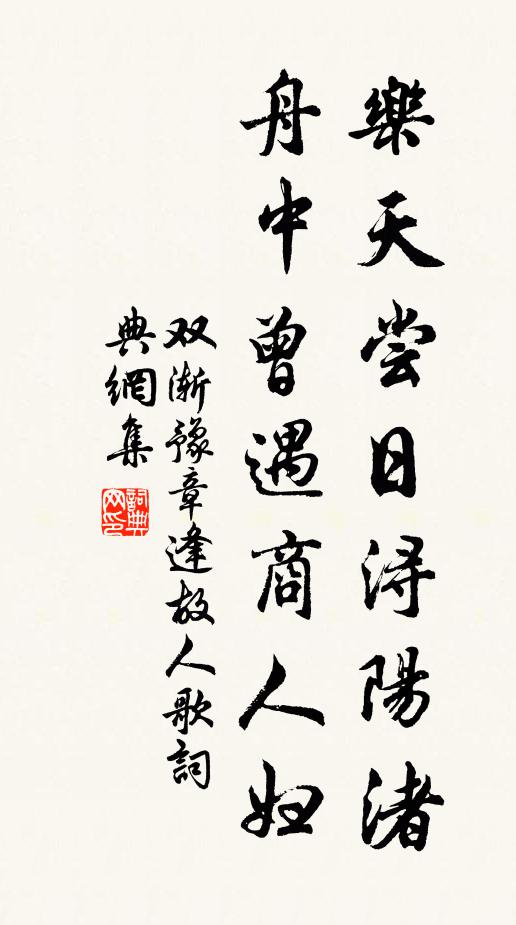 樂天尝日浔陽渚
舟中曾遇商人妇
双渐豫章逢故人歌詞
典網集
詞典网印